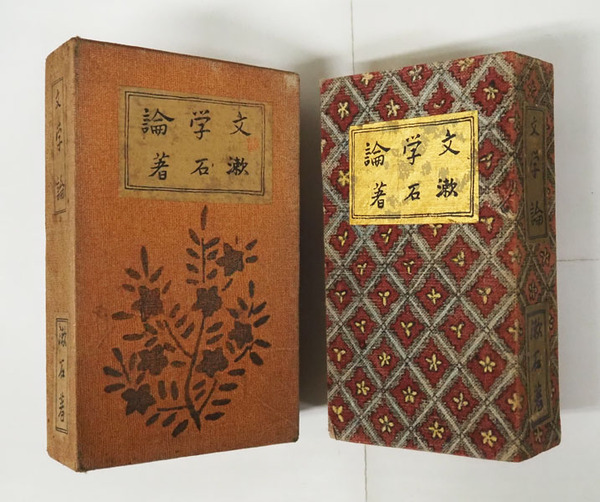 文学論
漱石著
文学論
漱石著
文学論
漱石著
文学論
漱石著